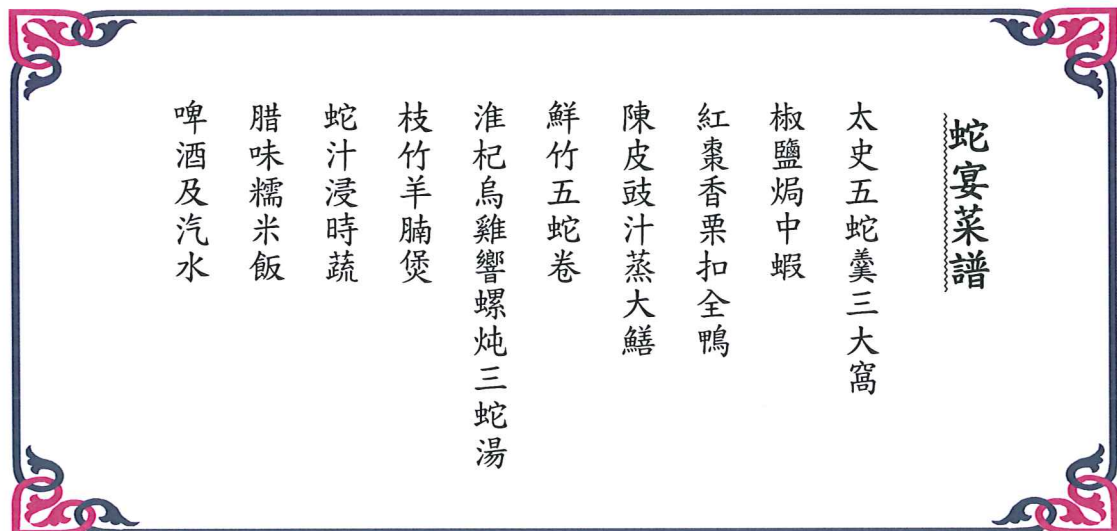 蛇宴菜譜
太史五蛇羹三大窩
椒鹽焗中蝦
紅棗香栗扣全鴨
陳皮豉汁蒸大鱔
鮮竹五蛇卷
淮杞烏雞響螺炖三蛇湯
枝竹羊腩煲
蛇汁浸時蔬
腊味糯米飯
啤酒及汽水